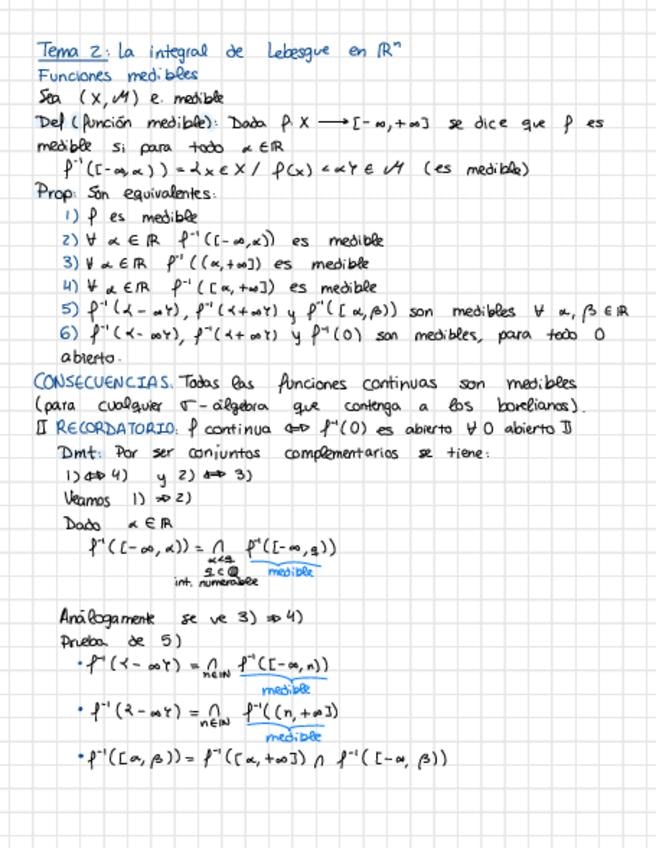 Tema 2: La integral de Lebesgue en ℝⁿ
Funciones medibles
Sea (X, M) e. medible
Def (función medible): Dada f: X ⟶ [-∞,+∞] se dice que f es
medible si para todo α∈ℝ
f⁻¹([-∞,α)) = {x∈X / f(x) < α} ∈ M (es medible)
Prop: Son equivalentes:
1) f es medible
2) ∀ α ∈ ℝ f⁻¹([-∞,α)) es medible
3) ∀ α ∈ ℝ f⁻¹((α,+∞]) es medible
4) ∀ α ∈ ℝ f⁻¹([α,+∞]) es medible
5) f⁻¹({-∞}), f⁻¹({+∞}) y f⁻¹([α,β)) son medibles ∀ α, β ∈ ℝ
6) f⁻¹({-∞}), f⁻¹({+∞}) y f⁻¹(O) son medibles, para todo O
abierto.
CONSECUENCIAS: Todas las funciones continuas son medibles
(para cualquier σ-álgebra que contenga a los borelianos).
[[ RECORDATORIO: f continua ⇔ f⁻¹(O) es abierto ∀ O abierto ]]
Dmt: Por ser conjuntos complementarios se tiene:
1) ⇔ 4) y 2) ⇔ 3)
Veamos 1) ⇒ 2)
Dado α ∈ ℝ
f⁻¹([-∞,α)) = ∩ f⁻¹([-∞,q))
α<q
q∈ℚ medible
int. numerable
Análogamente se ve 3) ⇒ 4)
Prueba de 5)
• f⁻¹({-∞}) = ∩ n∈ℕ f⁻¹([-∞,n))
medible
• f⁻¹({-∞}) = ∩ n∈ℕ f⁻¹((n,+∞])
medible
• f⁻¹([α,β)) = f⁻¹([α,+∞]) ∩ f⁻¹([-∞,β))